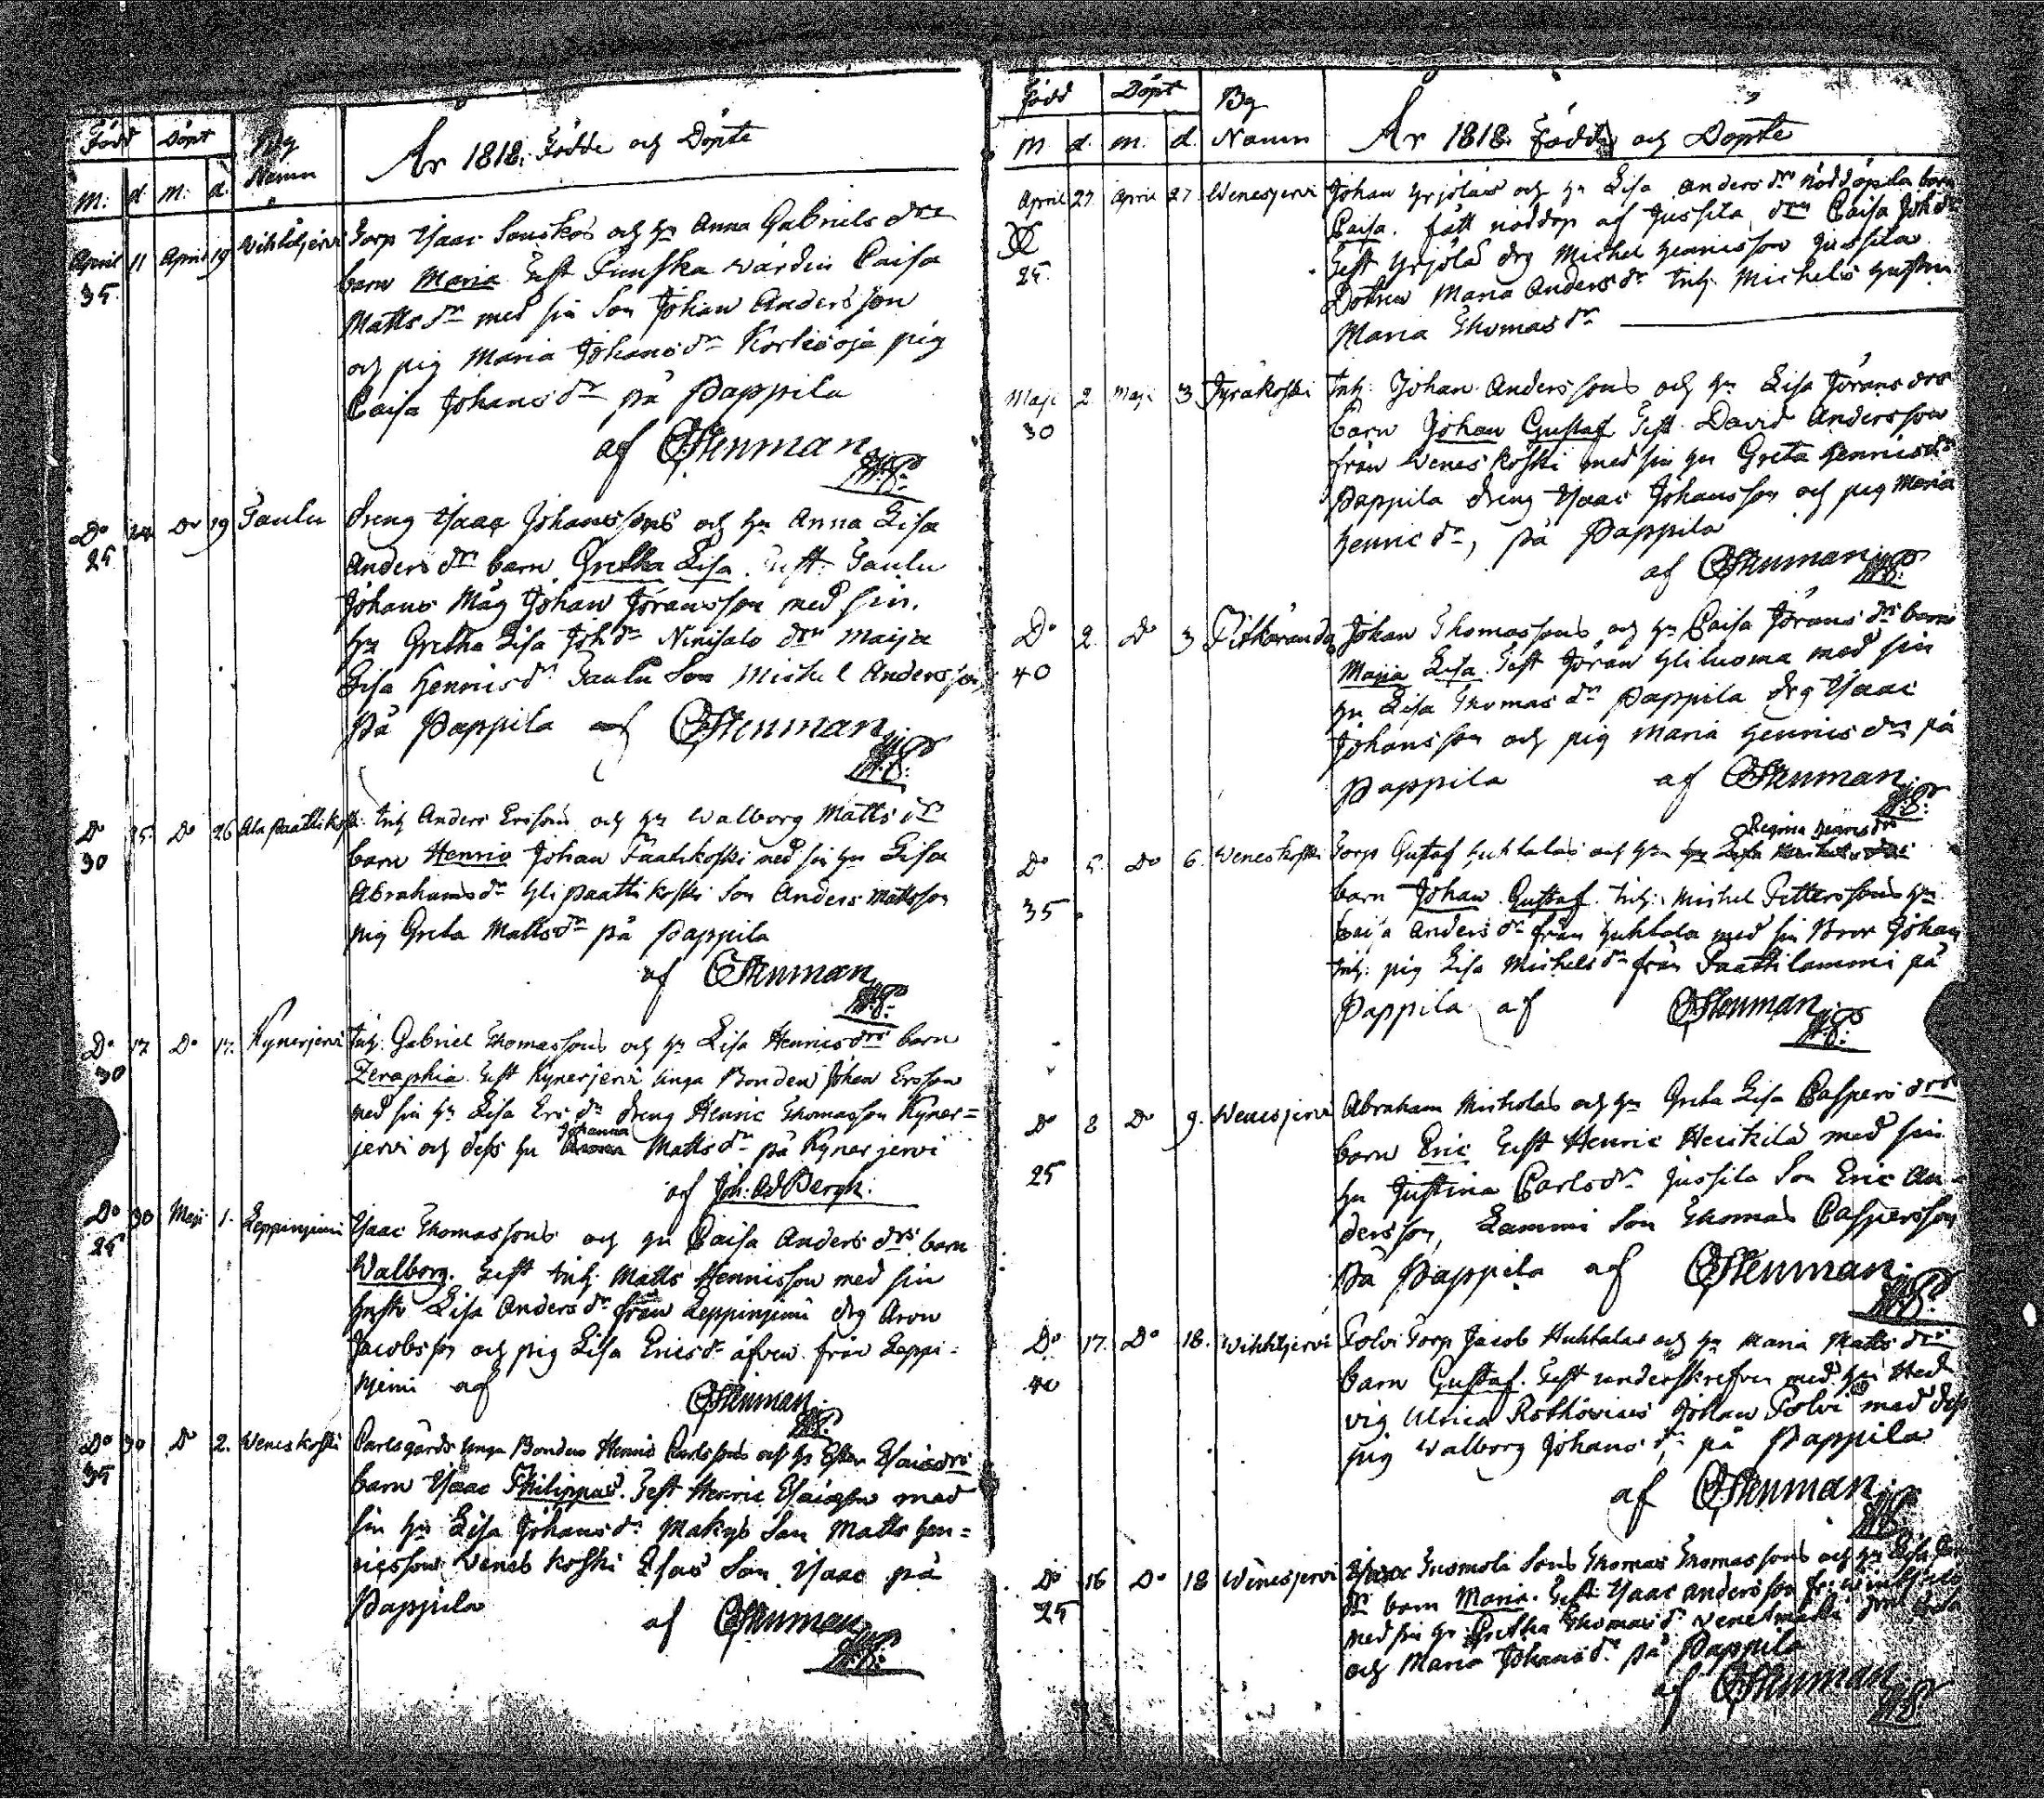 Född Döpt By Namn
M: d. M: d.
År 1818. Födde och Döpte
April 11 April 19
Torp Isaac Souskos och hu Anna Gabriels drs
35
barn Maria Test Finnska värdin Caisa
Matts dr med sin Son Johan Andersson
och pig Maria Johans dr Korkeoja pig
Caisa Johans dr på Pappila
af CStenman
Do Do 19 Taulu
Dreng Isaac Johanssons och hu Anna Lisa
25
Anders drs barn Gretha Lisa. Test. Taulu
Johans Måg Johan Jöransson med sin
hu Gretha Lisa Joh dr Ninisalo drn Maija
Lisa Henrics dr Taulu Son Michel Andersson
På Pappila af CStenman
Do 25 Do 26 Ala Paattikoski
Inh Anders Ersons och hu Walborg Matts drs
30
barn Henric Johan Paatikoski med sin hu Lisa
Abrahams dr Yli Paattikoski Son Anders Mattsson
pig Greta Matts dr på Pappila
af CStenman
Do 17 Do 17. Kynerjervi
Inh. Gabriel Thomassons och hu Lisa Henrics drs barn
30
Zeraphia. Test Kynerjervi unga Bonden Johan Ersson
med sin hu Lisa Ers dr dreng Henric Thomasson Kyner=
jervi och dess hu Johanna Matts dr på Kynerjervi
af Joh: Ad Bergh.
Do 30 Maji 1. Leppinjemi
Isaac Thomassons och hu Caisa Anders drs barn
25
Walborg. Test Inh. Matts Henricsson med sin
hustr Lisa Anders dr från Leppinjemi drg Aron
Jacobsson och pig Lisa Erics dr äfven från Leppi=
njemi af CStenman
Do 30 Do 2. Weneskoski
Carlsgårds unga Bonden Henric Carlssons och hu Ester Esaias drs
35
barn Isaac Philippus. Test Henric Esaiasson med
sin hu Lisa Johans dr Makys Son Matts Hen=
ricsson Weneskoski Esas Son Isaac på
Pappila af CStenman
Född Döpt By
M d. m. d. Namn
År 1818. Födde och Döpte
April 27 April 27 Wenesjervi
Johan Yrjölas och hu Lisa Anders drs nöddöpta barn
Caisa. fått nöddop af Jussila drn Caisa Joh dr
25.
Test Yrjölä drg Michel Henricsson Jussila
Dottren Maria Anders dr Inh. Michels hustru
Maria Thomas dr
Maji 2 Maji 3 Jyräkoski
Inh: Johan Anderssons och hu Lisa Jörans drs
30
barn Johan Gustaf Test. David Andersson
från Weneskoski med sin hu Greta Henrics dr
Pappila dreng Isaac Johansson och pig Maria
Henric dr, på Pappila
af CStenman
Do 2. Do 3 Pitkäranda
Johan Thomassons och hu Caisa Jörans drs barn
40
Maija Lisa. Test Jöran Yliluoma med sin
hu Lisa Thomas dr Pappila drg Isaac
Johansson och pig Maria Henrics dr på
Pappila af CStenman
Regina Henrics drs
Do 5. Do 6. Weneskoski
Torp Gustaf Huhtalas och hu
35
barn Johan Gustaf. Inh: Michel Petterssons hu
Caisa Anders dr från Huhtala med sin Bror Johan
Inh: pig Lisa Michels dr från Paattilammi på
Pappila af CStenman
Do 8 Do 9. Wenesjervi
Abraham Micholas och hu Greta Lisa Caspers drs
25
barn Eric Test Henric Heickilä med sin
hu Justina Carls dr Jussila Son Eric An=
dersson, Lammi Son Thomas Caspersson
På Pappila af CStenman
Do 17. Do 18.
Polvi Torp Jacob Huhtalas och hu Maria Matts drs
40
barn Gustaf. Test underskrefven med hu Hed
vig Ulrica Rothovius Johan Polvi med dess
pig Walborg Johans dr på Pappila
af CStenman
Do 16 Do 18 Wenesjervi
Sons Thomas Thomassons och hu Lisa
25
dr barn Maria. Test Isaac Andersson
med sin hu Gretha Thomas dr
och Maria Johans dr på Pappila
af CStenman